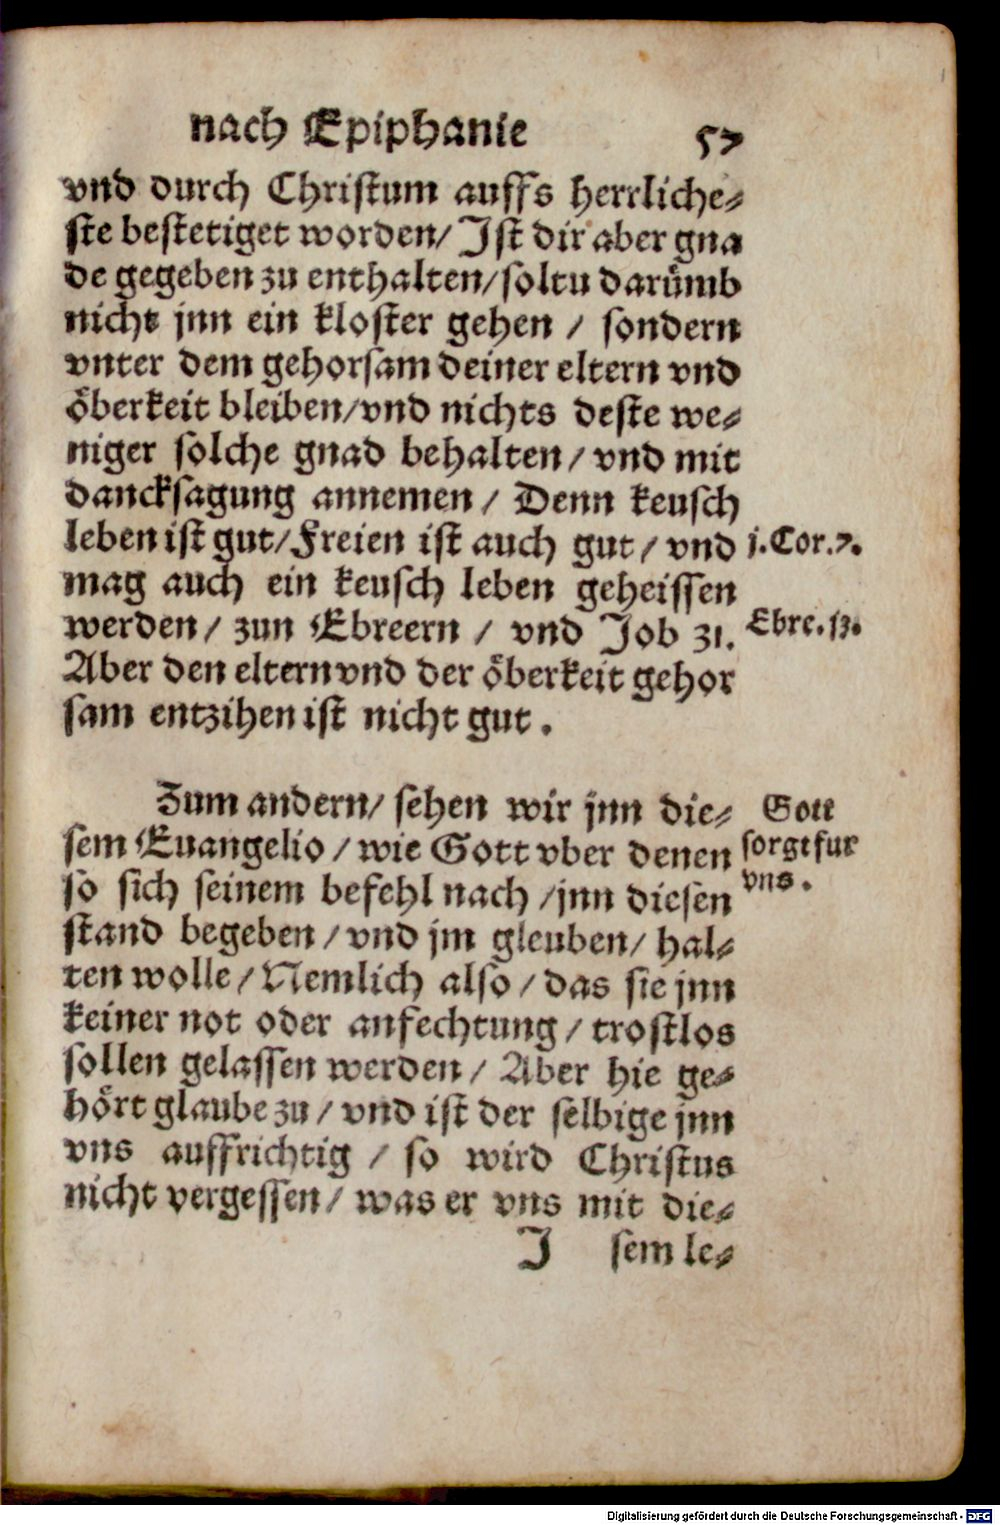 nach Epiphanie 57
vnd durch Christum auffs herrliche⸗
ste bestetiget worden/ Ist dir aber gna
de gegeben zu enthalten/ soltu darůmb
nicht jnn ein kloster gehen / sondern
vnter dem gehorsam deiner eltern vnd
oͤberkeit bleiben/ vnd nichts deste we⸗
niger solche gnad behalten/ vnd mit
dancksagung annemen/ Denn keusch
leben ist gut/ Freien ist auch gut/ vnd j. Cor. 7.
mag auch ein keusch leben geheissen
werden/ zun Ebreern / vnd Job 31. Ebre. 13.
Aber den eltern vnd der oͤberkeit gehor
sam entzihen ist nicht gut.
Zum andern/ sehen wir jnn die⸗ Gott
sem Euangelio/ wie Gott vber denen sorgt fur
so sich seinem befehl nach /jnn diesen vns.
stand begeben/ vnd jm gleuben/ hal⸗
ten wolle/ Nemlich also/ das sie jnn
keiner not oder anfechtung/ trostlos
sollen gelassen werden/ Aber hie ge⸗
hoͤrt glaube zu/ vnd ist der selbige jnn
vns auffrichtig / so wird Christus
nicht vergessen/ was er vns mit die⸗
J sem le⸗
Digitalisierung gefördert durch die Deutsche Forschungsgemeinschaft - DFG